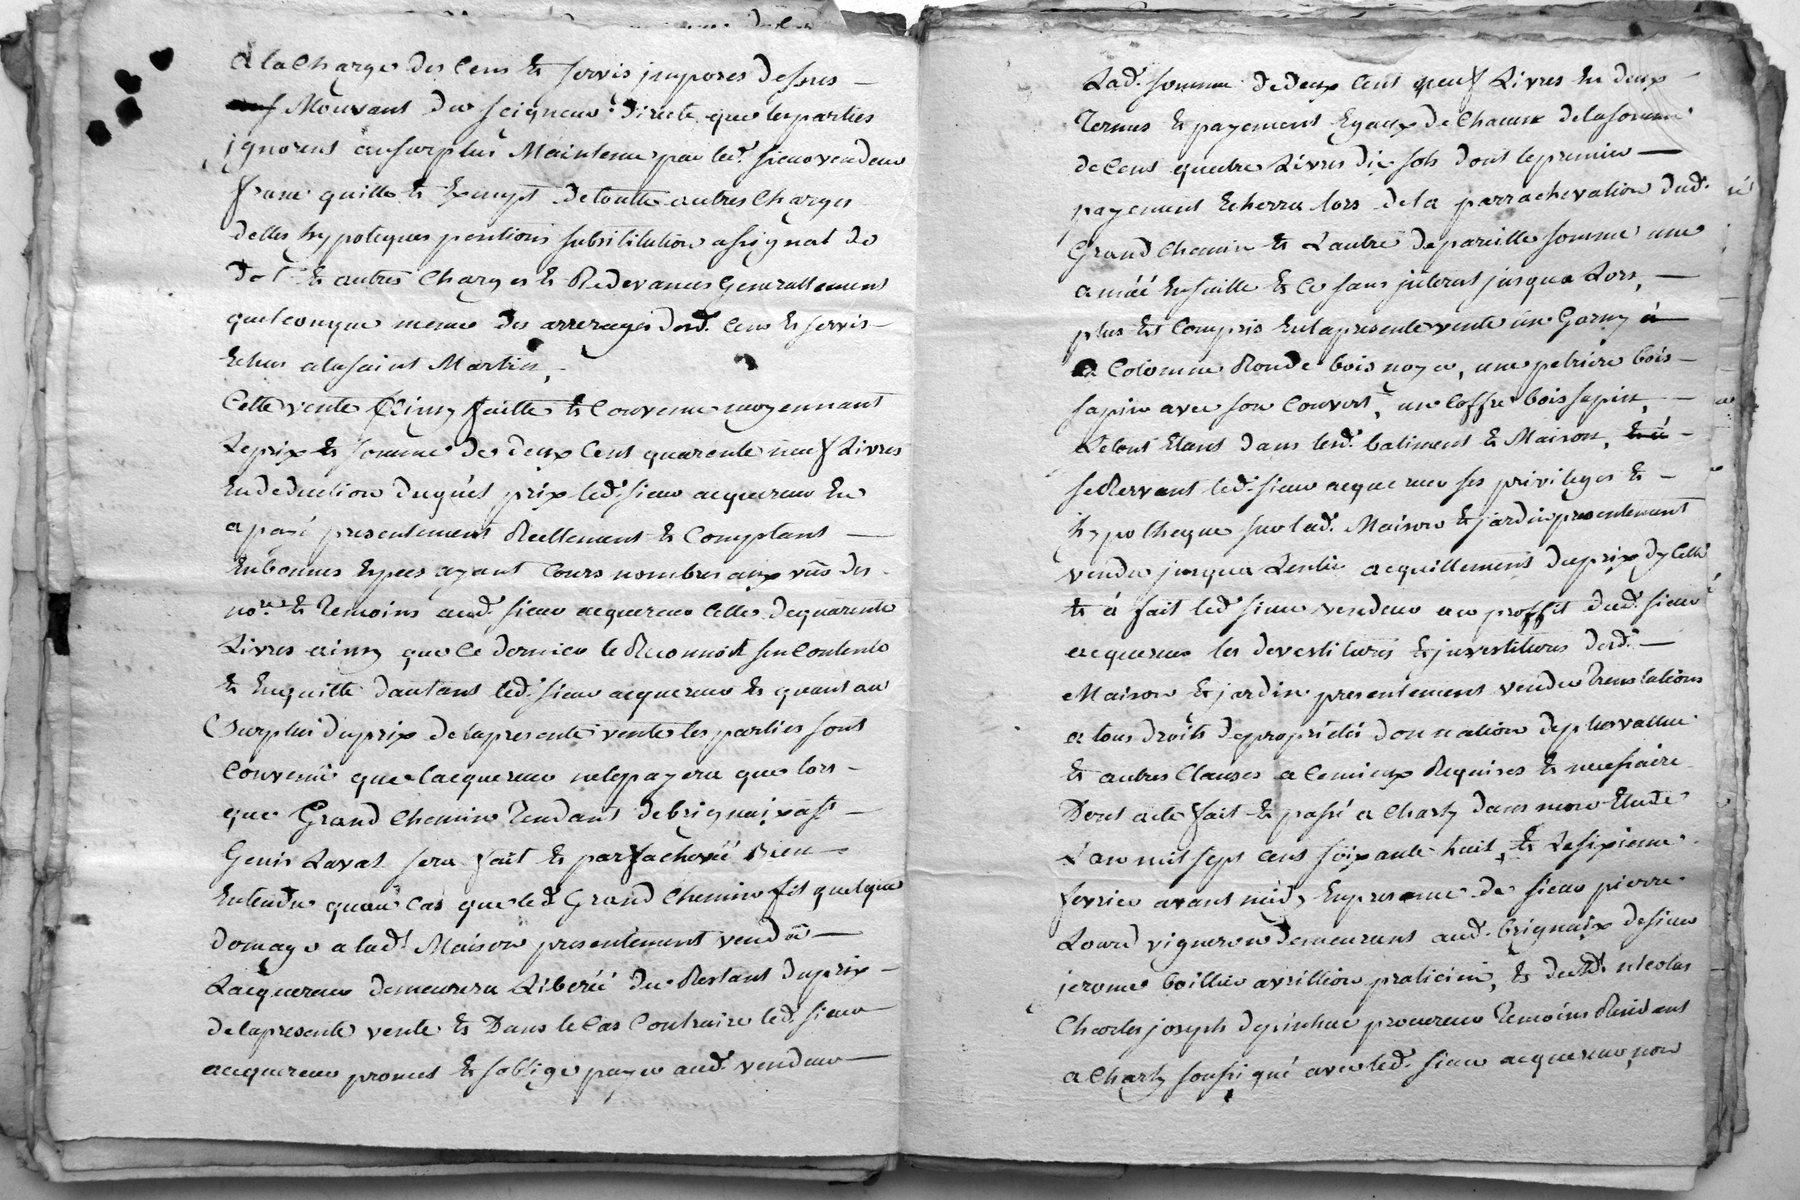 a la Charge des Cens et servis imposes dessus
Mouvant du seigneur directe que les parties
ignorent au surplus Maintenue par led. sieur vendeur
franc quitte et Exempt de toutte autres Charges
dettes hypoteques pentions substitution assignat de
dot et autres Charges et Redevances Generallement
quelconque meme des arrerages desd. Cens et servis
Echus a la saint Martin,
Cette vente Ainsy faitte et Convenue moyennant
Le prix et somme de deux Cent quarente neuf Livres
En deduction duquel prix led. sieur acquereur En
a payé presentement Reellement et Comptant
En bonnes Espees ayant Cours nombres aux vus des
nore. et Temoins aud. sieur acquereur Celle de quarente
Livres ainsy que Ce dernier le Reconnoit sen Contente
et En quitte dautant led. sieur acquereur et quant au
Surplus du prix de la presente vente les parties sont
Convenü que lacquereur ne le payera que lors
que Grand Chemin Tendant de brignaix a st
Genis Laval sera fait et parfachevéé Bien
Entendu quau Cas que led. Grand Chemin fit quelque
domage a lad. Maison presentement vendü
Lacquereur demeurera Liberéé du Restant du prix
de la presente vente et Dans le Cas Contraire led. sieur
acquereur promet et soblige payer aud. vendeur
Lad. somme de deux Cent neuf Livres En deux
Termes et payement Egaux de Chacun de la somme
de Cent quatre Livres dix sols dont le premier
payement Echerra lors de la parrachevation dud.
Grand Chemin et Lautre de pareille somme une
annéé Ensuitte et Ce sans jnterest jusqua Lors,
plus Est Compris En la presente vente un Garny
a Colomne Ronde bois noyer, une petrière bois
sapin avec son Couvert, un Coffre bois sapin,
Le tout Etant dans lesd. batiment et Maison,
se Reservant led. sieur acquereur ses privileges et
hypotheque sur lad. Maison et jardin presentement
vendu jusqua Lentier acquittement du prix dyCelle
et á fait led. sieur vendeur au proffit dud. sieur
acquereur les devestitures et jnvestitures desd.
Maison et jardin presentement vendu Translations
a tous droits de proprietés donnation de plus vallue
et autres Clauses a Ce mieux Requises et necessaire
Dont acte fait et passé a Charly dans mon Etude
Lan mil sept cent soixante huit, et Le sixieme
fevrier avant midy En presence de sieur pierre
Lourd vigneron demeurant aud. brignaix de sieur
jerome boillier avrillion praticien, et de Md. nicolas
Charles joseph procureur Temoins Residant
a Charly soussigné avec led. sieur acquereur, non